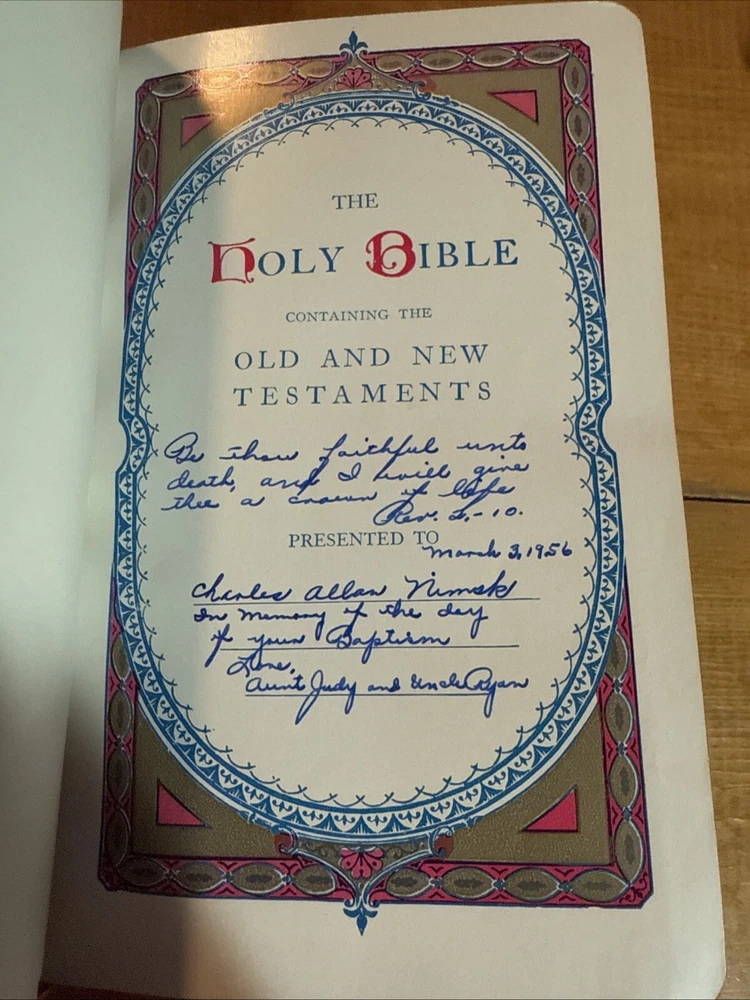 THE
HOLY BIBLE
CONTAINING THE
OLD AND NEW
TESTAMENTS
Be thou faithful unto
death, and I will give
thee a crown of life
Rev. 2-10.
PRESENTED TO
March 3, 1956
Charles Allan Nimsk
In Memory of the day
of your Baptism
Love,
Aunt Judy and Uncle Ryan